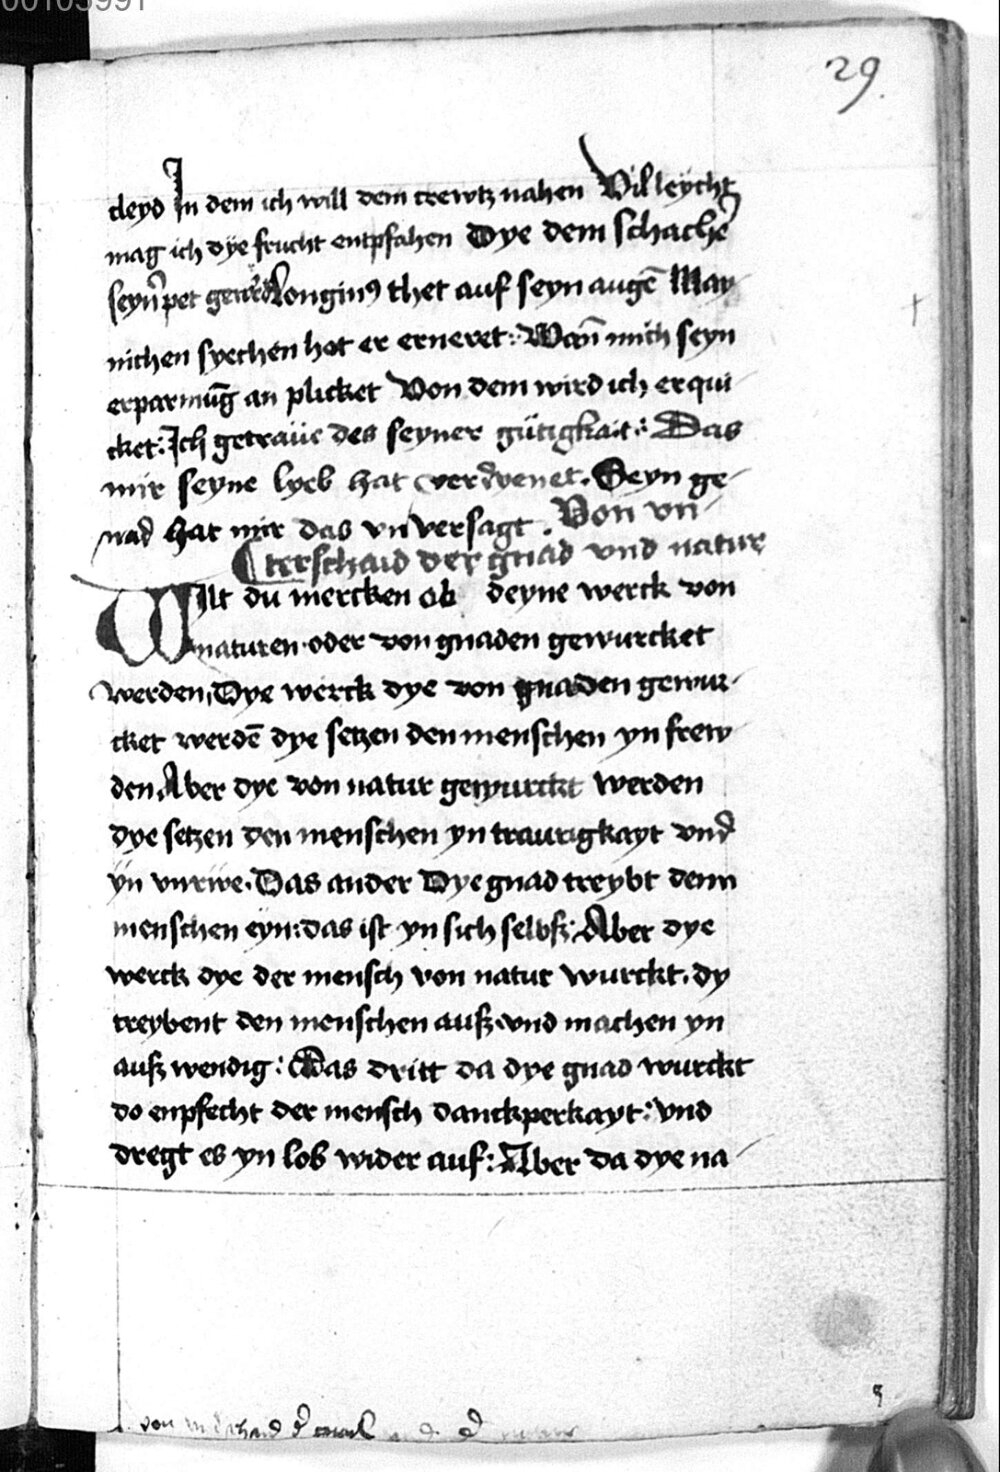 00105991
29.
cleyd In dem ich will dem crewtz nahen Villeycht
mag ich dye frucht entpfahen Dye dem schachẽ
seyñ pet Longinꝰ thet auf seyn augẽ May-
nichen syechen hot er erneret: Wañ mich seyn
erparmũg an plicket Von dem wird ich erqui-
cket: Ich getraüe des seyner gütigkait: Das
mir seyne lyeb hat verdyenet. Seyn ge-
nad hat mir das vn versagt. Von vn-
terschaid der gnad vnd natur
Wilt du mercken ob deyne werck von
naturen oder von gnaden gewurcket
werden, Dye werck dye von gnaden gewur-
cket werdẽ dye setzen den menschen yn frew-
den Aber dye von natur gewurckt werden
dye setzen den menschen yn traurigkayt vnd
yn vnrwe. Das ander Dye gnad treybt denn
menschen eyn: das ist yn sich selbß: Aber dye
werck dye der mensch von natur wurckt. dy
treybent den menschen auß vnd machen yn
auß wendig: Das dritt da dye gnad wurckt
do enpfecht der mensch danckperkayt: vnd
dregt es yn lob wider auf: Aber da dye na-
von